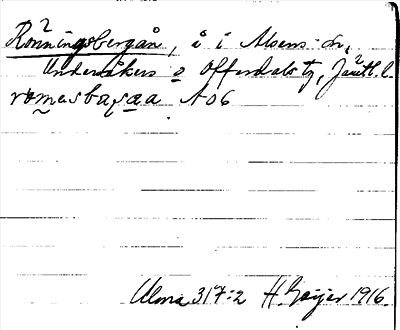 Rönningsbergån, å i Alsens sn,
Undersåkers o Offerdals tg, Jämtl. l.
A06
Ulma 317:2 H. Geijer 1916.